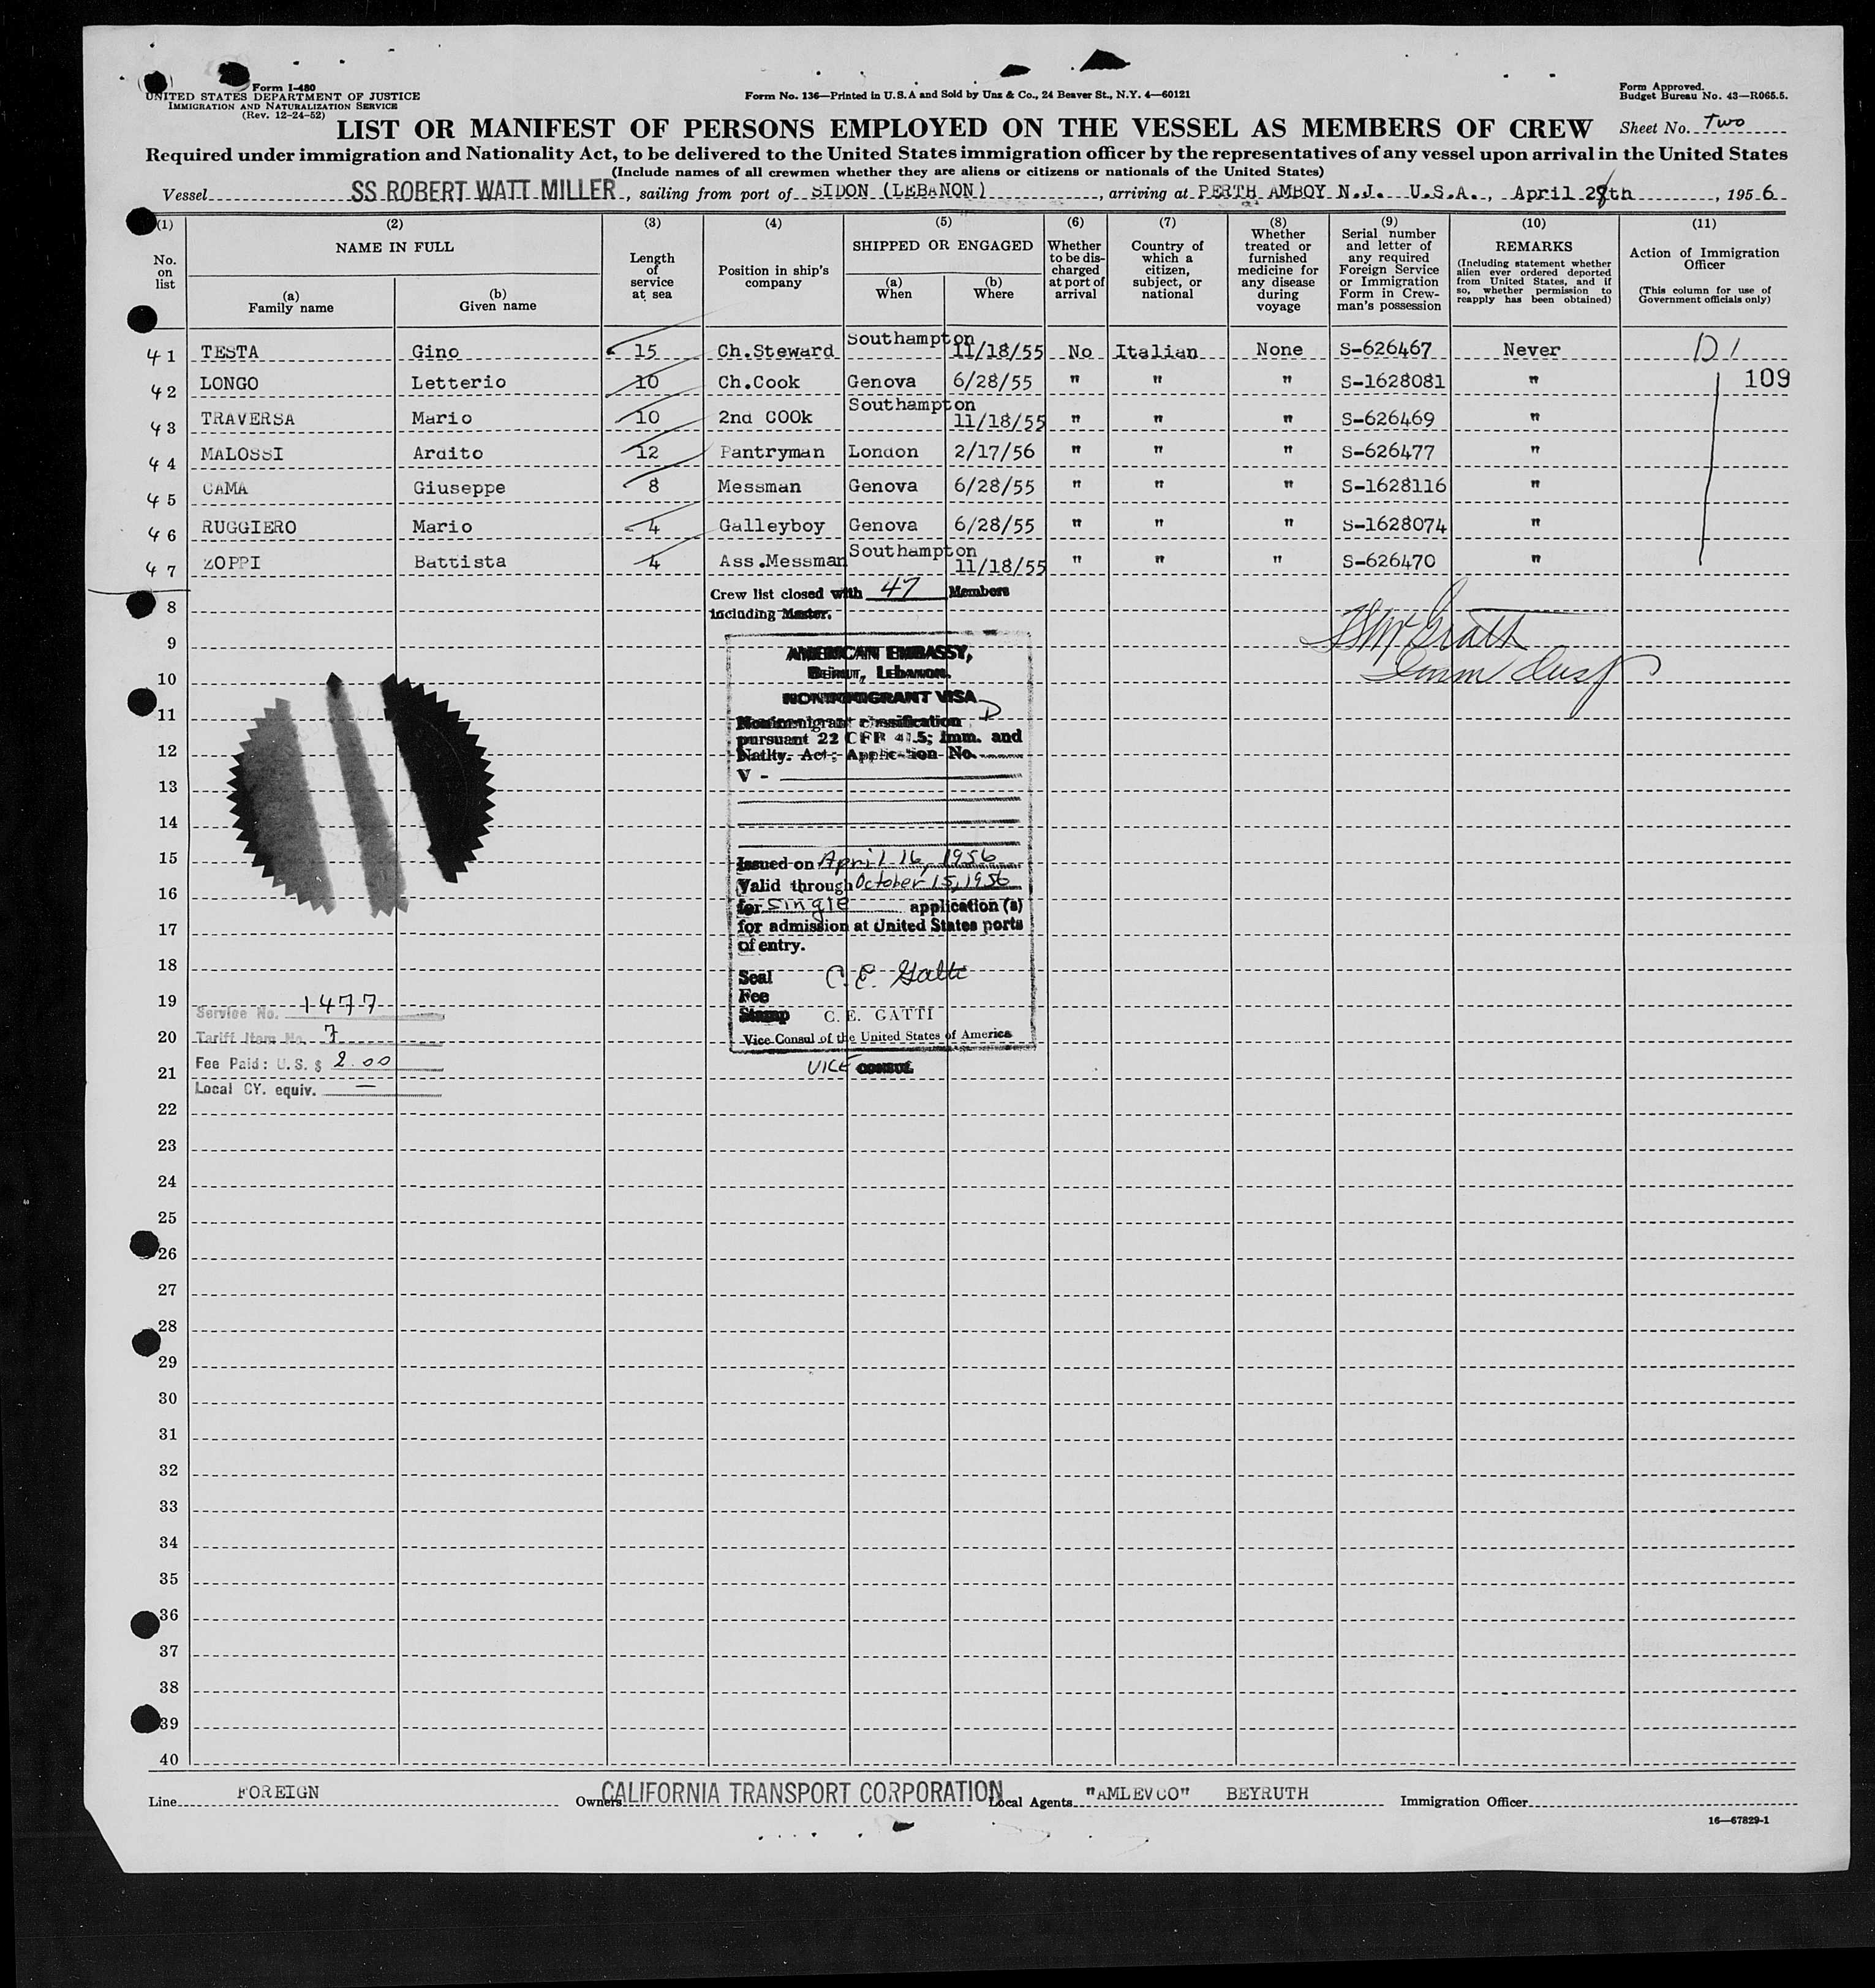 Form I-480
UNITED STATES DEPARTMENT OF JUSTICE
IMMIGRATION AND NATURALIZATION SERVICE
(Rev. 12-24-52)
Form No. 136—Printed in U.S.A and Sold by Unz & Co., 24 Beaver St., N.Y. 4—60121
Form Approved.
Budget Bureau No. 43—R065.5.
LIST OR MANIFEST OF PERSONS EMPLOYED ON THE VESSEL AS MEMBERS OF CREW Sheet No. Two
Required under immigration and Nationality Act, to be delivered to the United States immigration officer by the representatives of any vessel upon arrival in the United States
(Include names of all crewmen whether they are aliens or citizens or nationals of the United States)
Vessel SS ROBERT WATT MILLER, sailing from port of SIDON (LEBANON), arriving at PERTH AMBOY N.J. U.S.A., April 28th, 1956
(1) (2) (3) (4) (5) (6) (7) (8) (9) (10) (11)
No. on list
NAME IN FULL
(a) Family name
(b) Given name
Length of service at sea
Position in ship's company
SHIPPED OR ENGAGED
(a) When
(b) Where
Whether to be discharged at port of arrival
Country of which a citizen, subject, or national
Whether treated or furnished medicine for any disease during voyage
Serial number and letter of any required Foreign Service or Immigration Form in Crewman's possession
REMARKS
(Including statement whether alien ever ordered deported from United States, and if so, whether permission to reapply has been obtained)
Action of Immigration Officer
(This column for use of Government officials only)
41 TESTA Gino 15 Ch.Steward Southampton 11/18/55 No Italian None S-626467 Never D1
42 LONGO Letterio 10 Ch.Cook Genova 6/28/55 " " " S-1628081 " 109
43 TRAVERSA Mario 10 2nd COOk Southampton 11/18/55 " " " S-626469 "
44 MALOSSI Ardito 12 Pantryman London 2/17/56 " " " S-626477 "
45 CAMA Giuseppe 8 Messman Genova 6/28/55 " " " S-1628116 "
46 RUGGIERO Mario 4 Galleyboy Genova 6/28/55 " " " S-1628074 "
47 ZOPPI Battista 4 Ass.Messman Southampton 11/18/55 " " " S-626470 "
Crew list closed with 47 Members
including Master.
8
9
10
11
12
13
14
15
16
17
18
19
20
21
22
23
24
25
26
27
28
29
30
31
32
33
34
35
36
37
38
39
40
McGrath
Imm Insp
AMERICAN EMBASSY,
BEIRUT, LEBANON.
NONIMMIGRANT VISA
D
Nonimmigrant classification
pursuant 22 CFR 41.5; Imm. and
Natlty. Act; Application No.
V -
Issued on April 16, 1956
Valid through October 15, 1956
for single application (s)
for admission at United States ports
of entry.
Seal C. E. Gatti
Fee
Stamp C. E. GATTI
Vice Consul of the United States of America
VICE CONSUL
Service No. 1477
Tariff Item No. 7
Fee Paid: U.S. $ 2.00
Local CY. equiv. —
Line FOREIGN Owners CALIFORNIA TRANSPORT CORPORATION Local Agents "AMLEVCO" BEYRUTH Immigration Officer
16—67829-1